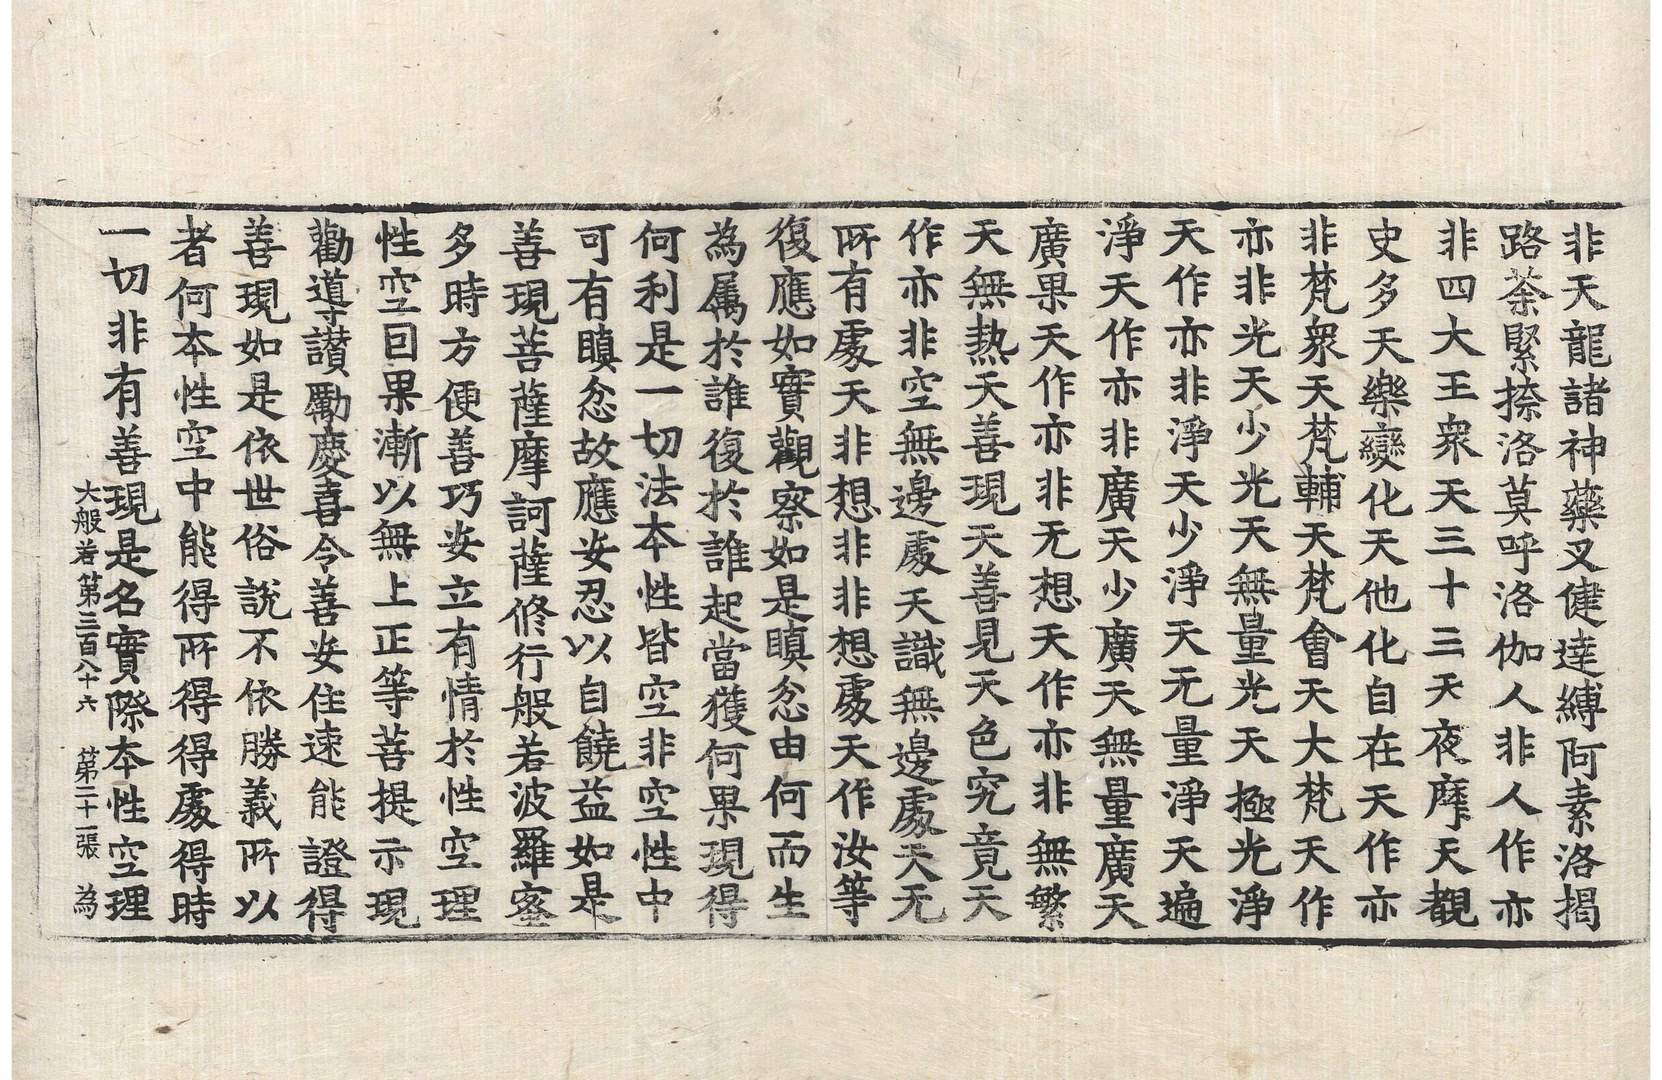 非天龍諸神藥叉健達縛阿素洛揭
路荼緊捺洛莫呼洛伽人非人作亦
非四大王衆天三十三天夜摩天覩
史多天樂變化天他化自在天作亦
非梵衆天梵輔天梵會天大梵天作
亦非光天少光天無量光天極光淨
天作亦非淨天少淨天无量淨天遍
淨天作亦非廣天少廣天無量廣天
廣果天作亦非无想天作亦非無繁
天無熱天善現天善見天色究竟天
作亦非空無邊處天識無邊處天无
所有處天非想非非想處天作汝等
復應如實觀察如是瞋忿由何而生
為屬於誰復於誰起當獲何果現得
何利是一切法本性皆空非空性中
可有瞋忿故應安忍以自饒益如是
善現菩薩摩訶薩修行般若波羅蜜
多時方便善巧安立有情於性空理
性空因果漸以無上正等菩提示現
勸導讃勵慶喜令善安住速能證得
善現如是依世俗說不依勝義所以
者何本性空中能得所得得處得時
一切非有善現是名實際本性空理
大般若第三百八十六 第二十一張 為